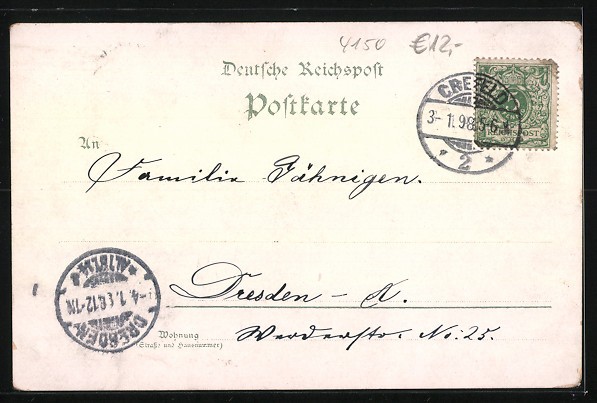 4150 €12,-
Deutsche Reichspost
Postkarte
CREFELD
3-1.98.5-6
2
REICHSPOST
An
Familie Jähnigen.
Dresden – A.
Wohnung
(Straße und Hausnummer)
Werderstr. No: 25.
DRESDEN
-4.1.98.12-1N
ALTST.14